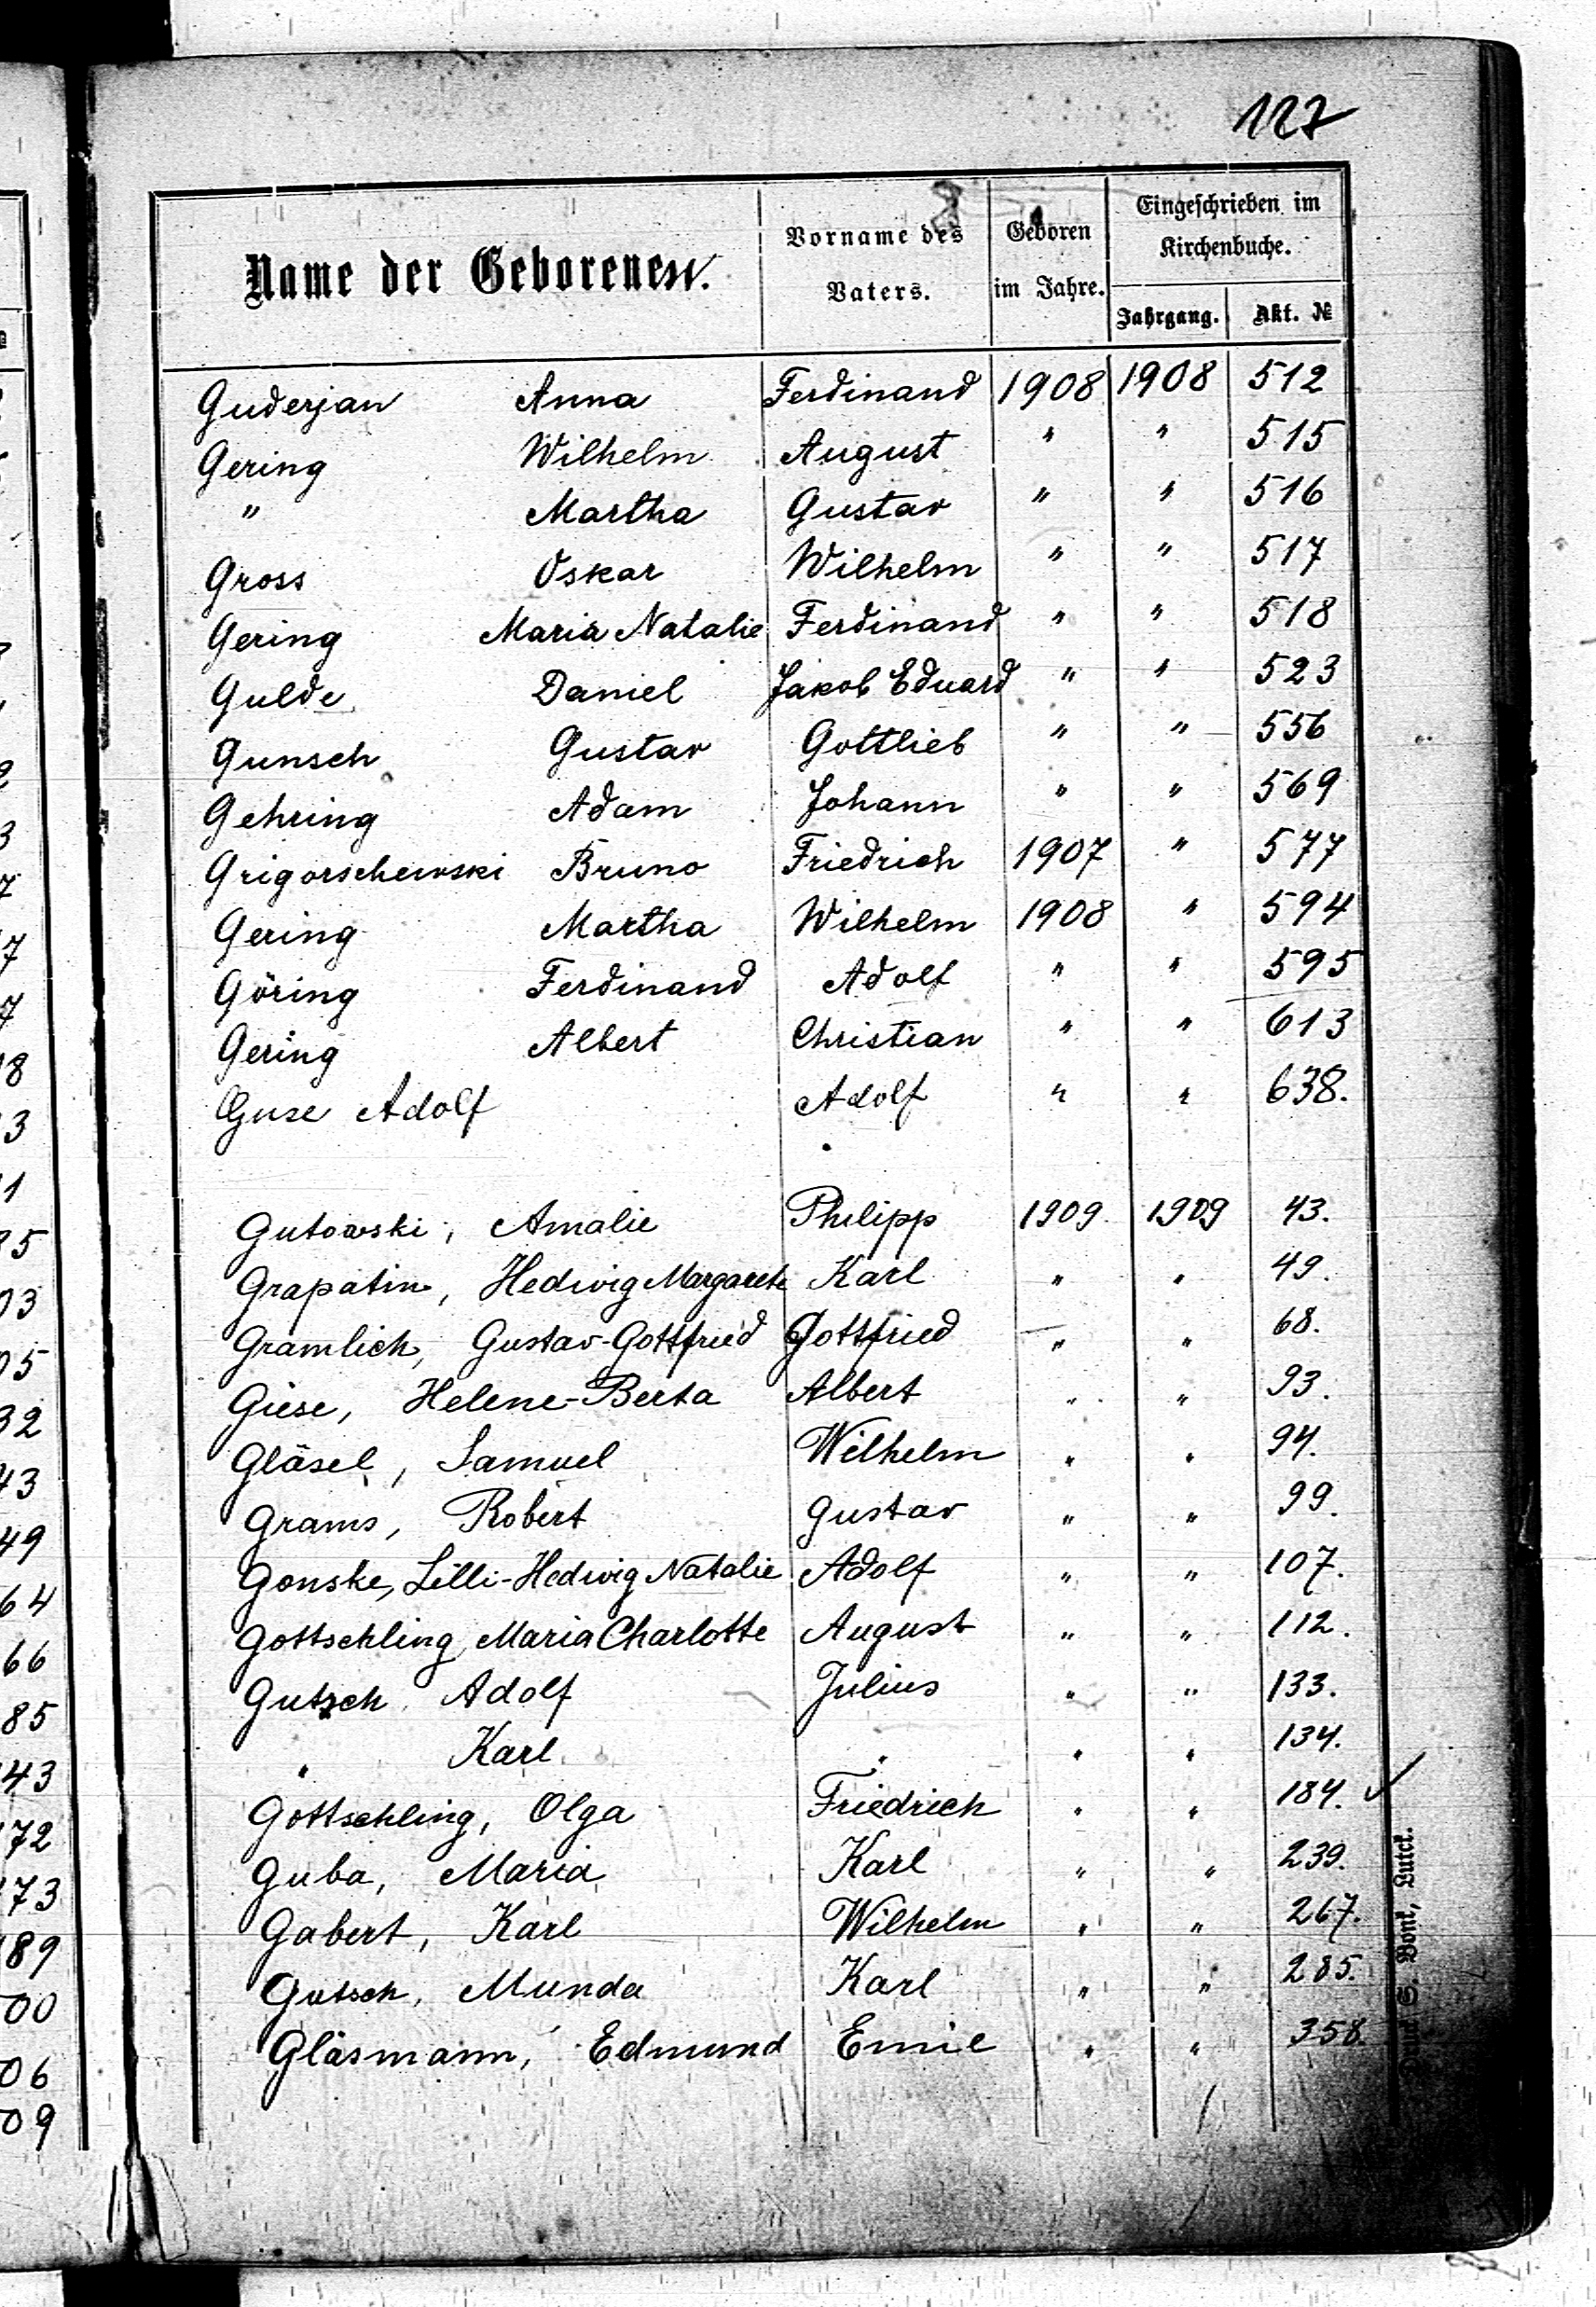 127
Name der Geborenen.
Vorname des Vaters.
Geboren im Jahre.
Eingeschrieben im Kirchenbuche.
Jahrgang. Akt. №
Guderjan Anna Ferdinand 1908 1908 512
Gering Wilhelm August " " 515
" Martha Gustav " " 516
Gross Oskar Wilhelm " " 517
Gering Maria Natalie Ferdinand " " 518
Gulde Daniel Jakob Eduard " " 523
Gunsch Gustav Gottlieb " " 556
Gehring Adam Johann " " 569
Grigorschewski Bruno Friedrich 1907 " 577
Gering Martha Wilhelm 1908 " 594
Göring Ferdinand Adolf " " 595
Gering Albert Christian " " 613
Guse Adolf Adolf " " 638.
Gutowski, Amalie Philipp 1909. 1909 43.
Grapatin, Hedwig Margarete Karl " " 49.
Gramlich, Gustav-Gottfried Gottfried " " 68.
Giese, Helene-Berta Albert " " 93.
Gläsel, Samuel Wilhelm " " 94.
Grams, Robert Gustav " " 99.
Gonske, Lilli-Hedwig Natalie Adolf " " 107.
Gottschling, Maria Charlotte August " " 112.
Gutsch Adolf Julius " " 133.
" Karl " " " 134.
Gottschling, Olga Friedrich " " 184. ✓
Guba, Maria Karl " " 239.
Gabert, Karl Wilhelm " " 267.
Gutsch, Munda Karl " " 285.
Gläsmann, Edmund Emil " " 358.
Bonk, Lutck.
3
7
7
7
18
13
11
35
03
05
32
43
49
64
66
85
43
72
73
89
00
06
09